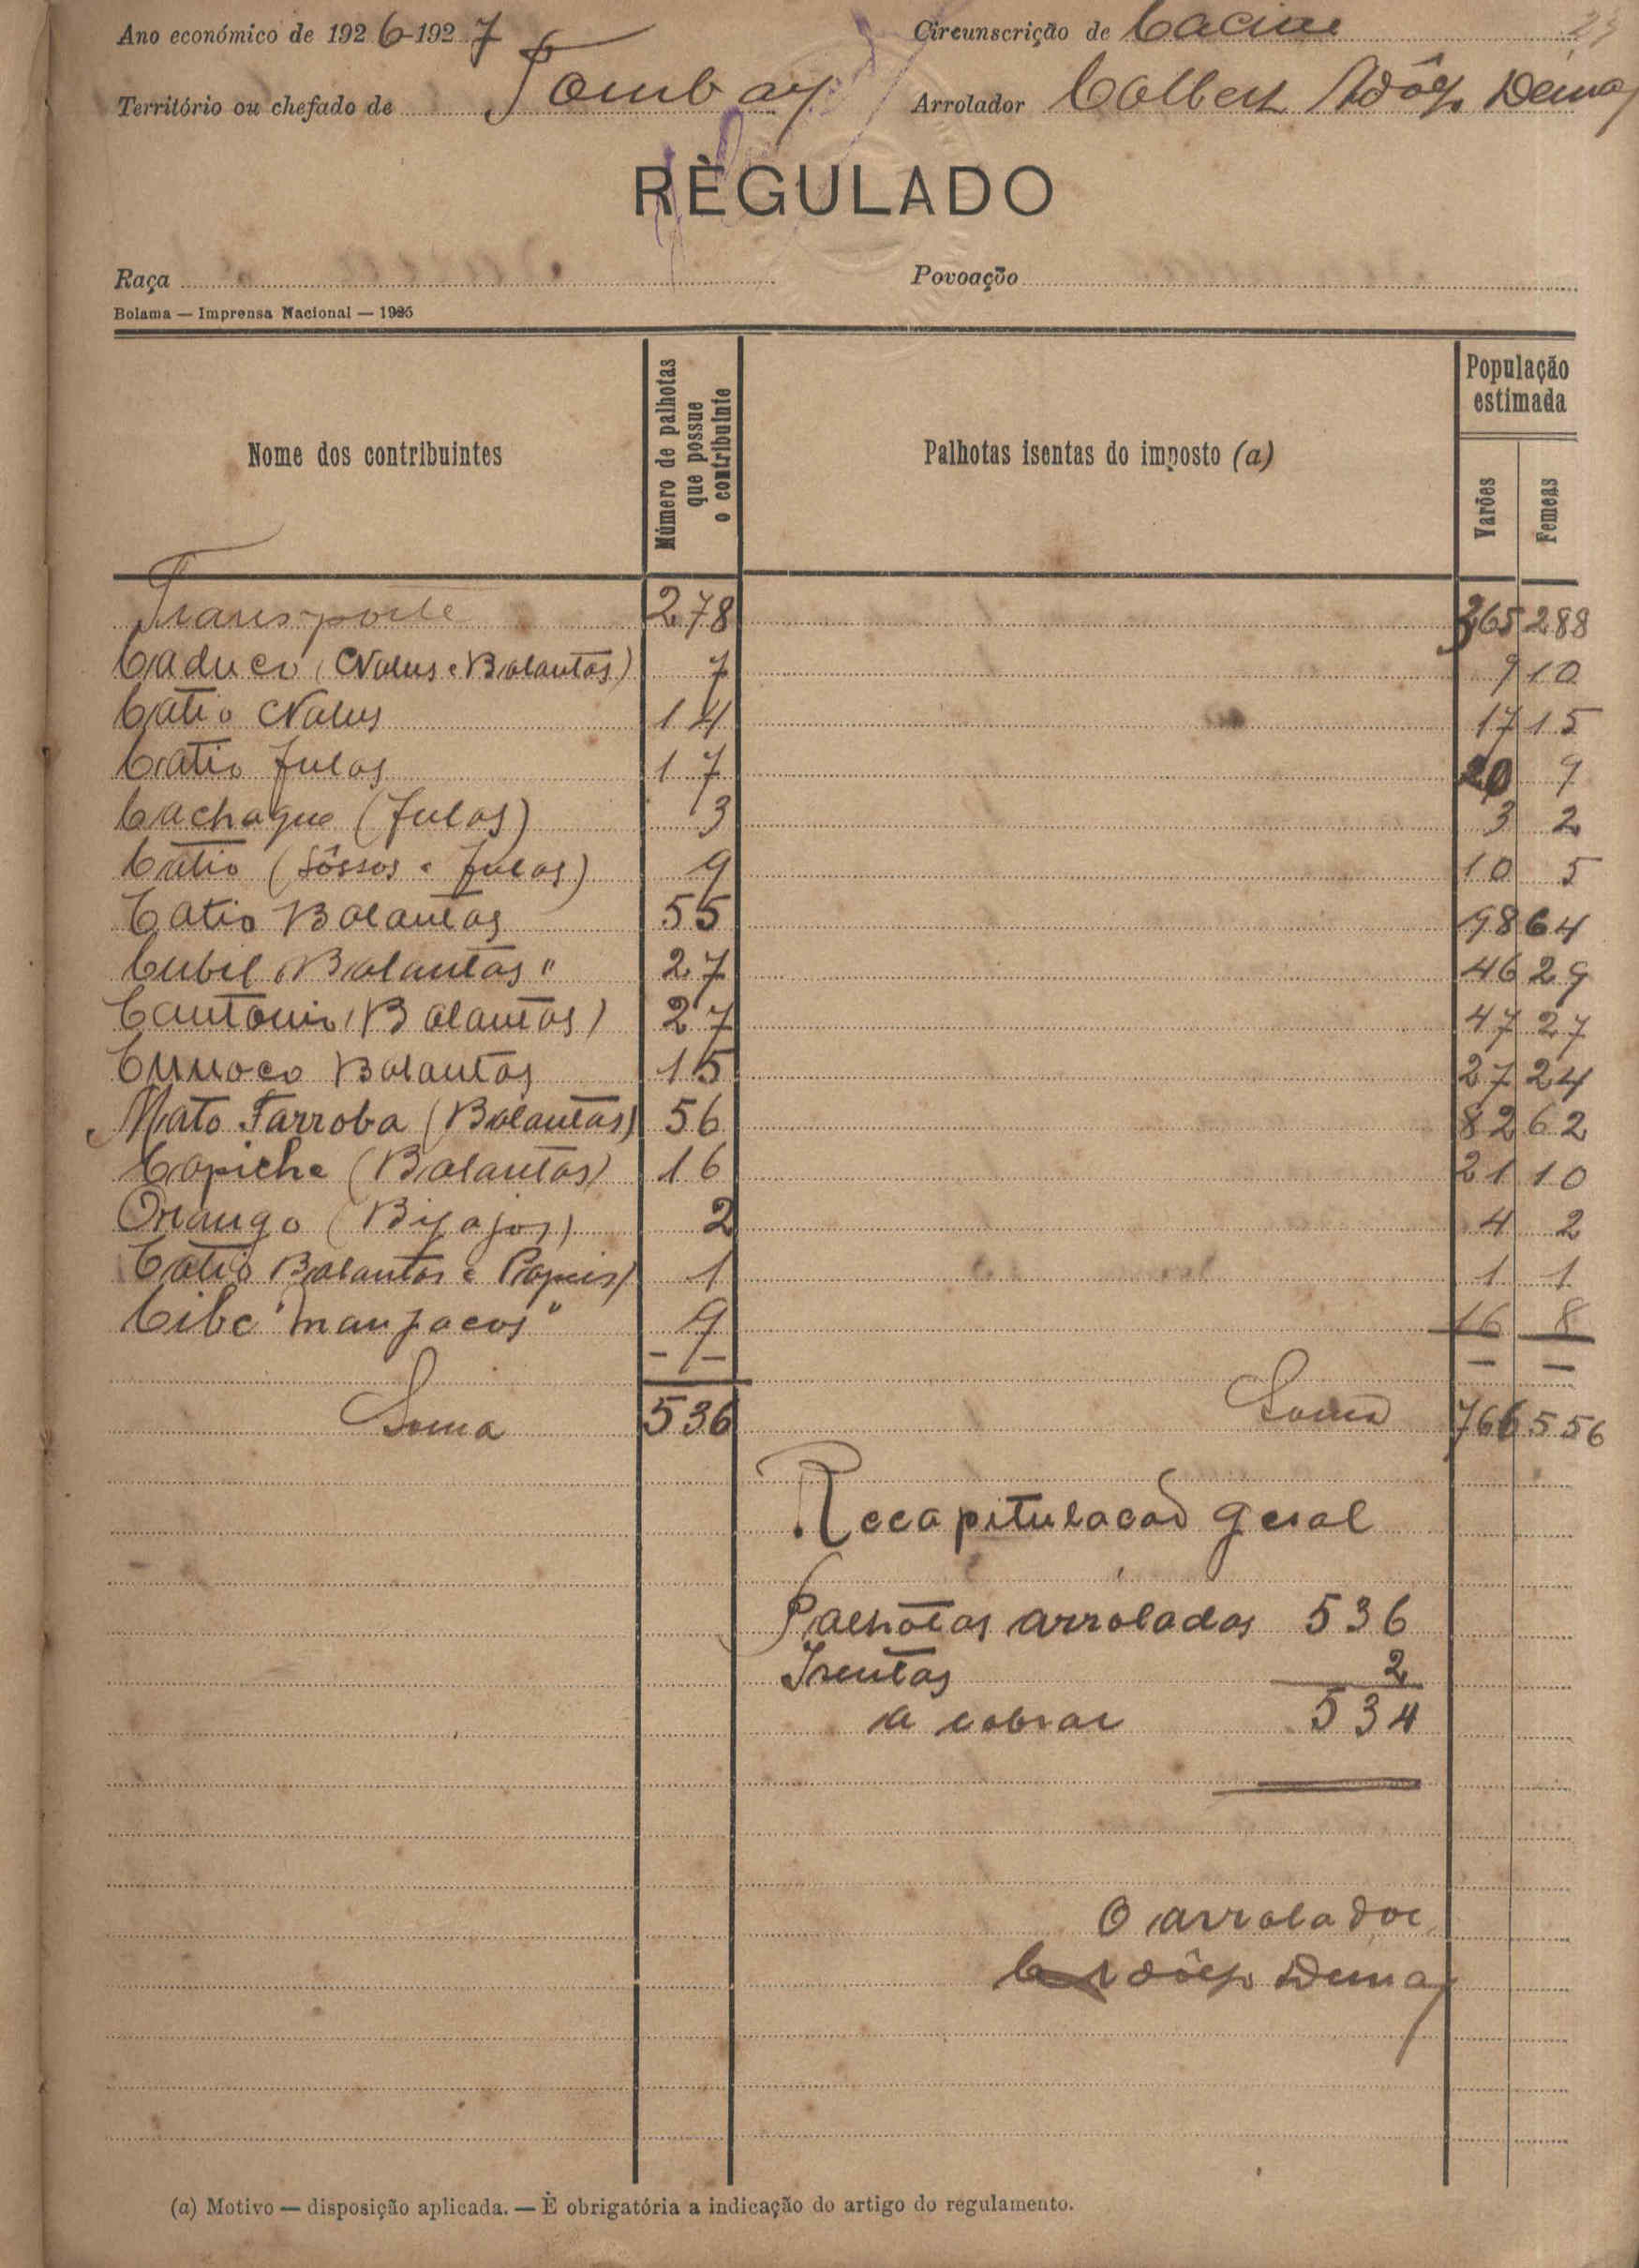 Ano económico de 1926-1927 Circunscrição de Cacine 23
Território ou chefado de Tombay Arrolador Colbert Adôlp Demay
RÈGULADO
Raça Povoação
Bolama — Imprensa Nacional — 1925
Nome dos contribuintes Número de palhotas que possue o contribuinte Palhotas isentas do imposto (a) População estimada Varões Femeas
Transporte 278 365 288
Caduco (Nalus e Balantas) 7 9 10
Catio Nalus 14 17 15
Catio Fulas 17 20 9
Cachaque (Fulas) 3 3 2
Catio (Sôssos e Fulas) 9 10 5
Catio Balantas 55 98 64
Cubil Balantas " 27 46 29
Cantonio (Balantas) 27 47 27
Cunoco Balantas 15 27 24
Mato Farroba (Balantas) 56 82 62
Capiche (Balantas) 16 21 10
Orango (Bijajos) 2 4 2
Catio Balantas e Papeis) 1 1 1
Cibe "manjacos" 9 16 8
Soma 536 Soma 766 556
Recapitulacão geral
Palhotas arroladas 536
Isentas 2
a cobrar 534
O arrolador
Adôlp Demay
(a) Motivo — disposição aplicada. — È obrigatória a indicação do artigo do regulamento.